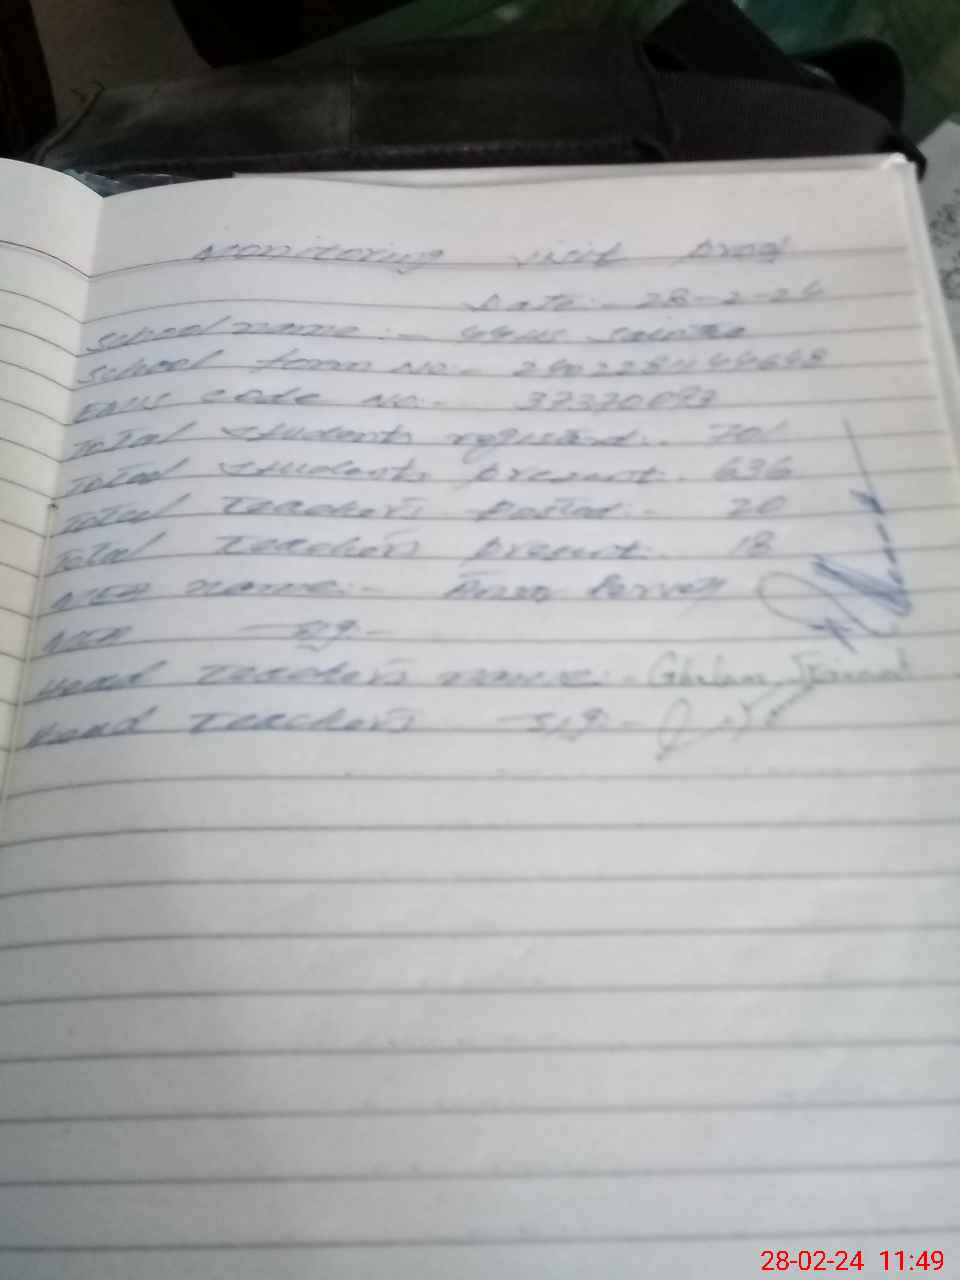 Monitoring visit Proof
Date:- 28-2-24
School name:-
School form No:-
EMIS code No:- 37370093
Total Students registerd:- 701
Total Students present:- 636
Total Teachers Posted:- 20
Total Teachers Present:- 18
MEA name:- Parvez
MEA Sig:-
Head Teachers name:- Ghulam
Head Teachers Sig:-
28-02-24 11:49